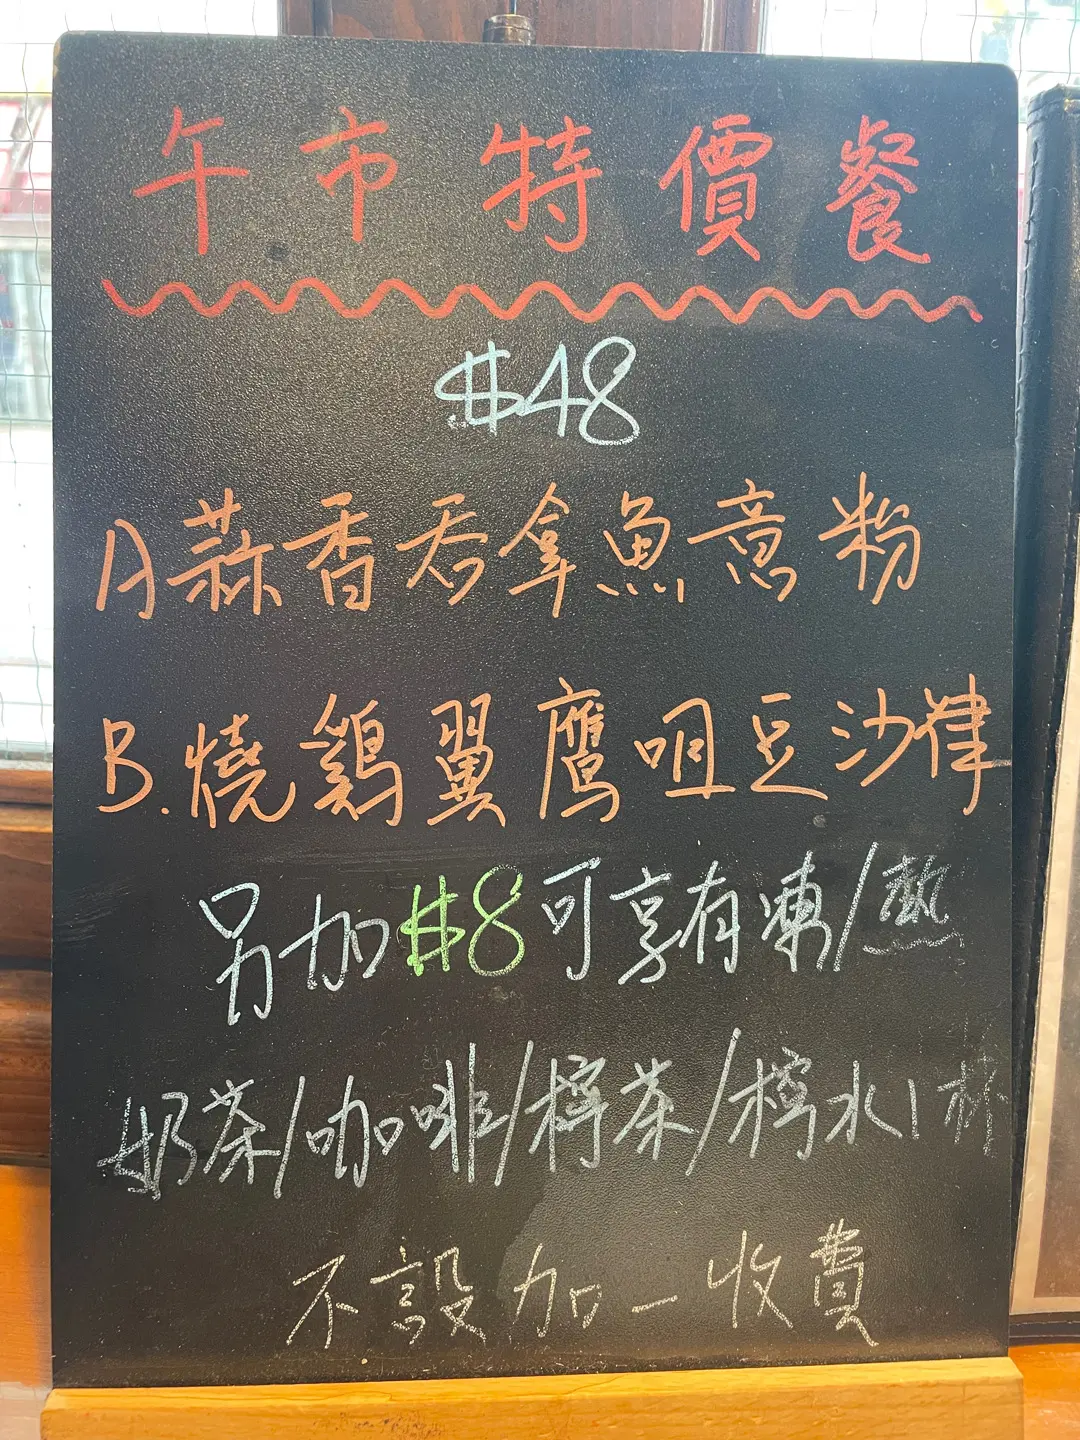 午市特價餐
$48
A 蒜香吞拿魚意粉
B. 燒鷄翼鷹咀豆沙律
另加$8可享有凍/熱
奶茶/咖啡/檸茶/檸水1杯
不設加一收費